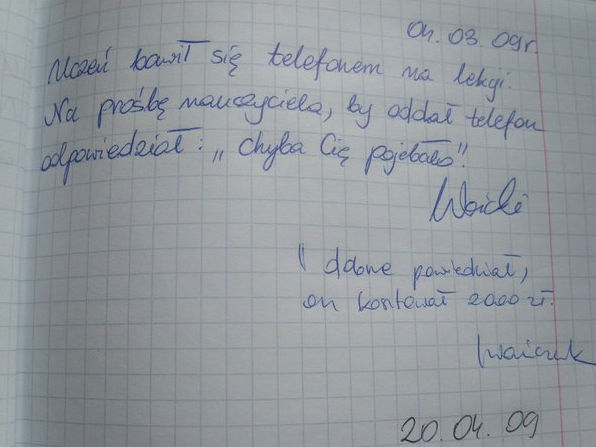 04.03.09r.
Uczeń bawił się telefonem na lekcji.
Na prośbę nauczyciela, by oddał telefon
odpowiedział: „ chyba Cię pojebało".
dobrze powiedział,
on kosztował 2000 zł.
20.04.09